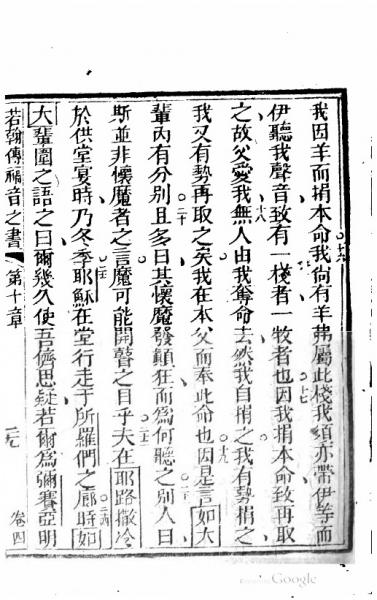 我因羊而捐本命我尚有羊弗屬此棧我須亦帶伊等而
十六
伊聽我聲音致有一棧者一牧者也因我捐本命致再取
十七
之故父愛我無人由我奪命去然我自捐之我有勢捐之
十八
我又有勢再取之矣我在本父而奉此命也因是言如大
十九
輩內有分別且多曰其懷魔發顛狂而為何聽之別人曰
二十
斯並非懷魔者之言魔可能開瞽之目乎夫在耶路撒冷
二一
二二
於供堂宴時乃冬季耶穌在堂行走于所羅們之廊時如
二三
二四
大輩圍之語之曰爾幾久使吾儕思疑若爾為彌賽亞明
若翰傳福音之書 第十章 卷四
Google